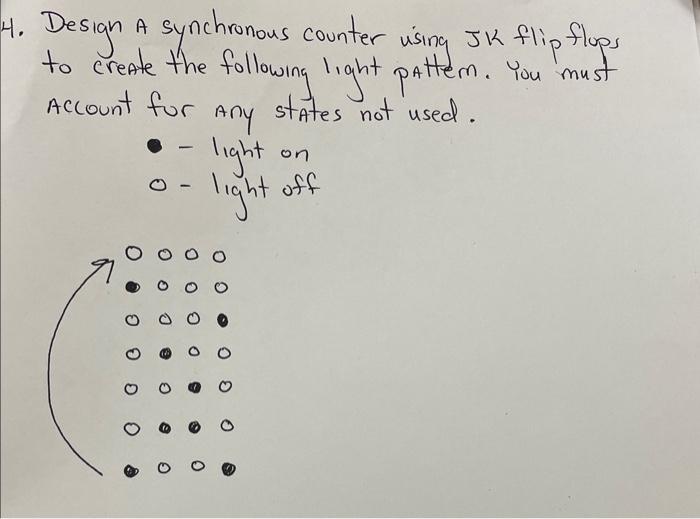 4. Design A synchronous counter using JK flip flops
to create the following light pattern. You must
Account for Any states not used.
● - light on
○ - light off